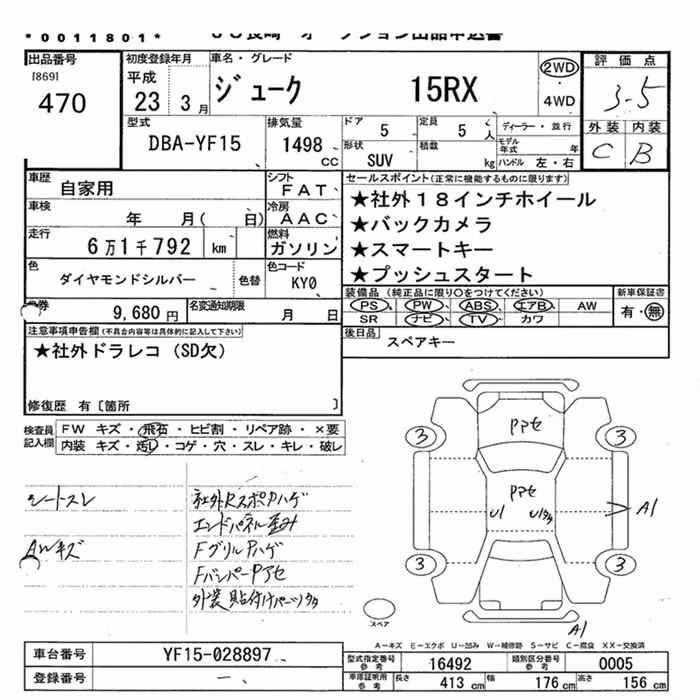 *0011801*
出品番号
[869]
470
初度登録年月
平成
23 3月
車名・グレード
ジューク 15RX
2WD
・
4WD
評価点
3.5
外装 内装
C B
型式
DBA-YF15
排気量
1498
cc
ドア
5
定員
5 人
形状
SUV
積載
kg
ディーラー・並行
モデル年式 年
ハンドル 左・右
車歴
自家用
シフト
FAT
車検
年 月( 日)
冷房
AAC
走行
6万1千792 km
燃料
ガソリン
色
ダイヤモンドシルバー
色替
色コード
KY0
セールスポイント(正常に機能するものに限ります)
★社外18インチホイール
★バックカメラ
★スマートキー
★プッシュスタート
券
9,680円
名変通知期限
月 日
装備品(純正品に限り○をつけてください)
PS PW ABS エアB AW
SR ナビ TV カワ
新車保証書
有・無
注意事項申告欄(不具合内容等は具体的に記入して下さい)
★社外ドラレコ(SD欠)
修復歴 有〔箇所 〕
後日品
スペアキー
検査員
記入欄
FW キズ・飛石・ヒビ割・リペア跡・×要
内装 キズ・汚レ・コゲ・穴・スレ・キレ・破レ
シートスレ
AWキズ
社外RスポPハゲ
エンドパネル歪み
FグリルPハゲ
FバンパーPアセ
外装貼付けパーツタタ
Pアセ
3 3
Pアセ
U1 Uタタ
A1
3 3
スペア
A1
A－キズ E－エクボ U－凹み W－補修跡 S－サビ C－腐食 XX－交換済
車台番号
YF15-028897
登録番号
－
型式指定番号
参考
16492
類別区分番号
参考
0005
車庫証明用
参考
長さ
413 cm
幅
176 cm
高さ
156 cm